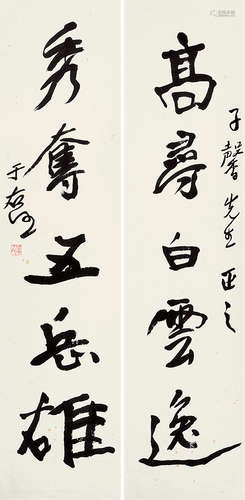 子馨先生正之
高尋白雲逸
秀奪五岳雄
于右任